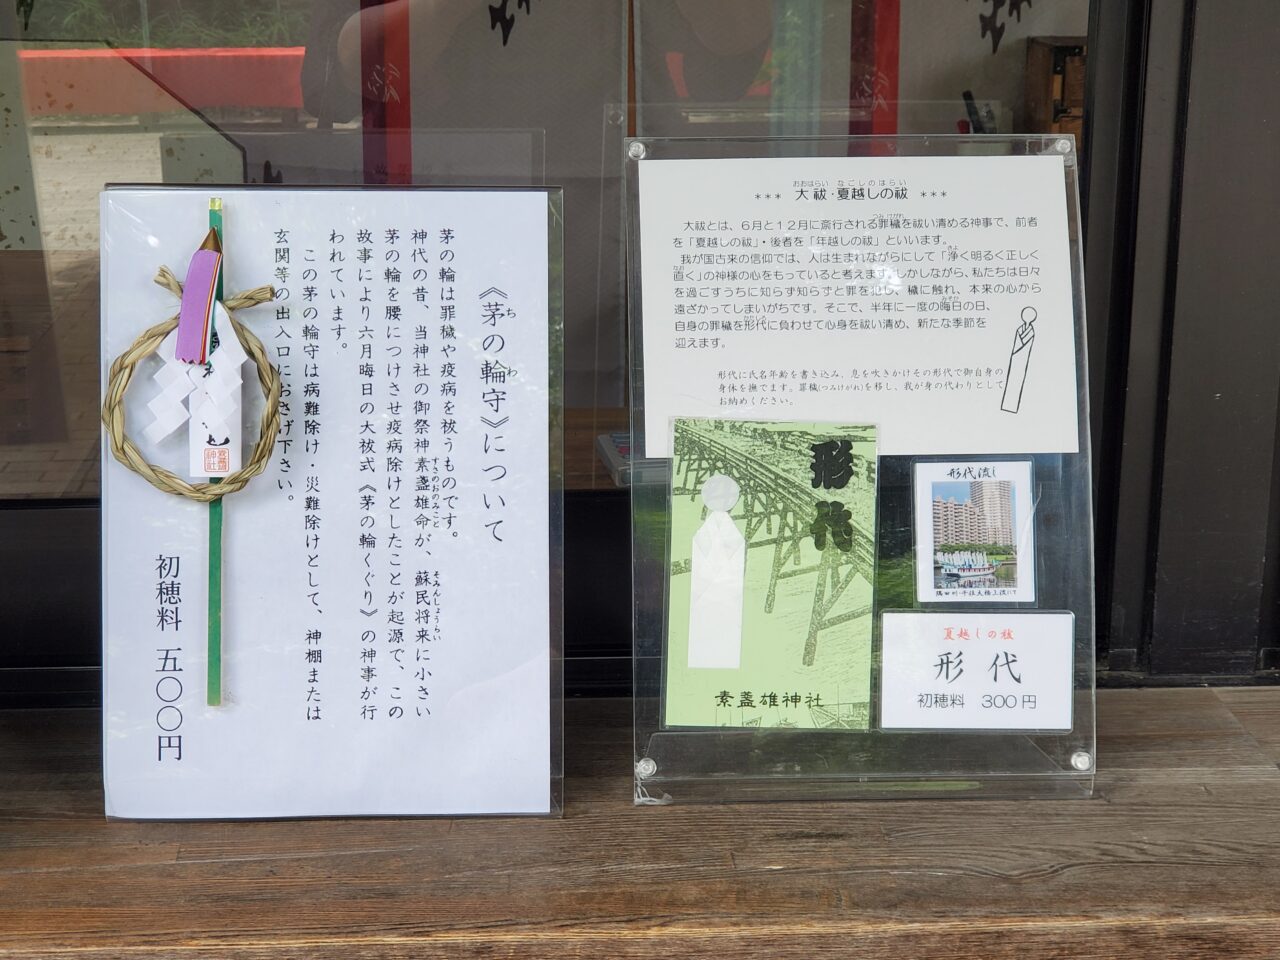 《茅の輪守》について
茅の輪は罪穢や疫病を祓うものです。
神代の昔、当神社の御祭神素盞雄命が、蘇民将来に小さい
茅の輪を腰につけさせ疫病除けとしたことが起源で、この
故事により六月晦日の大祓式《茅の輪くぐり》の神事が行
われています。
この茅の輪守は病難除け・災難除けとして、神棚または
玄関等の出入口におさげ下さい。
初穂料 五〇〇円
*** 大祓・夏越しの祓 ***
大祓とは、6月と12月に斎行される罪穢を祓い清める神事で、前者
を「夏越しの祓」・後者を「年越しの祓」といいます。
我が国古来の信仰では、人は生まれながらにして「浄く明るく正しく
直く」の神様の心をもっていると考えます。しかしながら、私たちは日々
を過ごすうちに知らず知らずと罪を犯し、穢に触れ、本来の心から
遠ざかってしまいがちです。そこで、半年に一度の晦日の日、
自身の罪穢を形代に負わせて心身を祓い清め、新たな季節を
迎えます。
形代に氏名年齢を書き込み、息を吹きかけその形代で御自身の
身体を撫でます。罪穢(つみけがれ)を移し、我が身の代わりとして
お納めください。
形代
素盞雄神社
形代流し
隅田川・千住大橋上流にて
夏越しの祓
形代
初穂料 300円